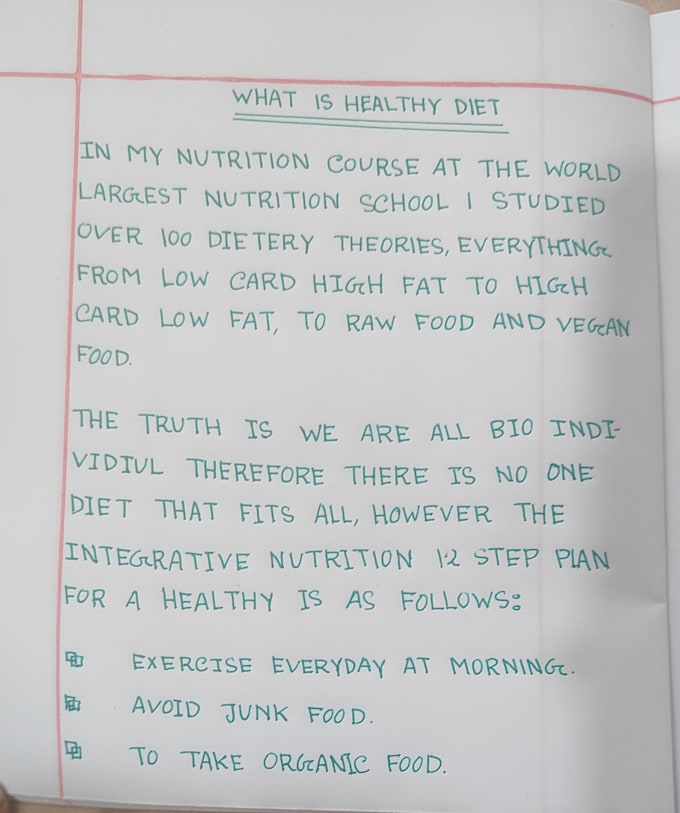 WHAT IS HEALTHY DIET
IN MY NUTRITION COURSE AT THE WORLD
LARGEST NUTRITION SCHOOL I STUDIED
OVER 100 DIETERY THEORIES, EVERYTHING
FROM LOW CARD HIGH FAT TO HIGH
CARD LOW FAT, TO RAW FOOD AND VEGAN
FOOD.
THE TRUTH IS WE ARE ALL BIO INDI-
VIDIUL THEREFORE THERE IS NO ONE
DIET THAT FITS ALL, HOWEVER THE
INTEGRATIVE NUTRITION 12 STEP PLAN
FOR A HEALTHY IS AS FOLLOWS:
EXERCISE EVERYDAY AT MORNING.
AVOID JUNK FOOD.
TO TAKE ORGANIC FOOD.